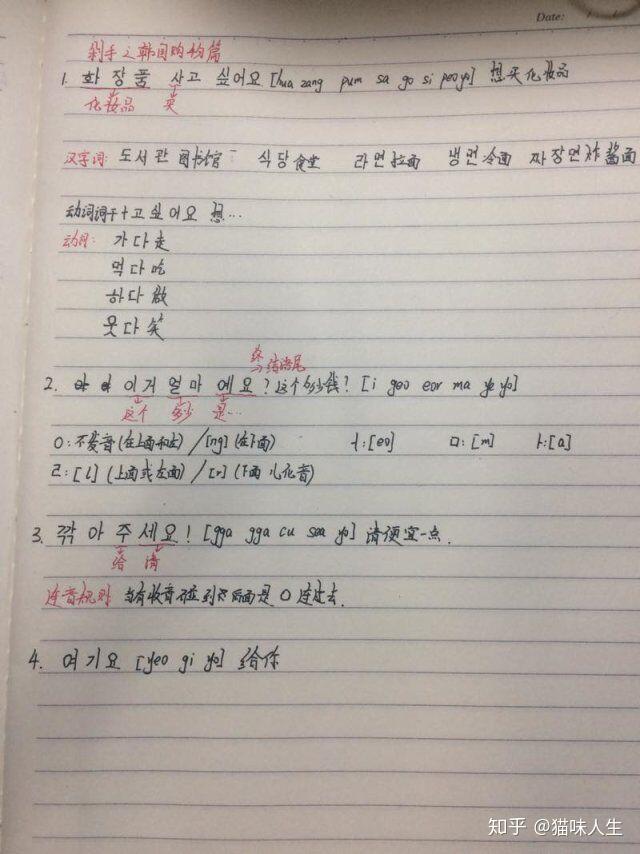 Date:
剁手之韩国购物篇
1. 화 장 품 사고 싶어요 [hua zang pum sa go si peo yo] 想买化妆品
化妆品 买
汉字词: 도서관 图书馆 식당 食堂 라면 拉面 냉면 冷面 짜장면 炸酱面
动词词干+고 싶어요 想…
动词: 가다 走
먹다 吃
하다 做
웃다 笑
终结语尾
2. 이거 얼마 예요? 这个多少钱? [i geo eor ma ye yo]
这个 多少 是…
ㅇ: 不发音(在上面和左) / [ng] (在下面) ㅓ:[eo] ㅁ:[m] ㅏ:[a]
ㄹ: [l] (上面或左面) / [r] (下面 儿化音)
3. 깎 아 주 세요! [gga gga cu sea yo] 请便宜一点.
给 请
连音规则 当有收音 后面是 ㅇ 连过去.
4. 여기요 [yeo gi yo] 给你
知乎 @猫味人生